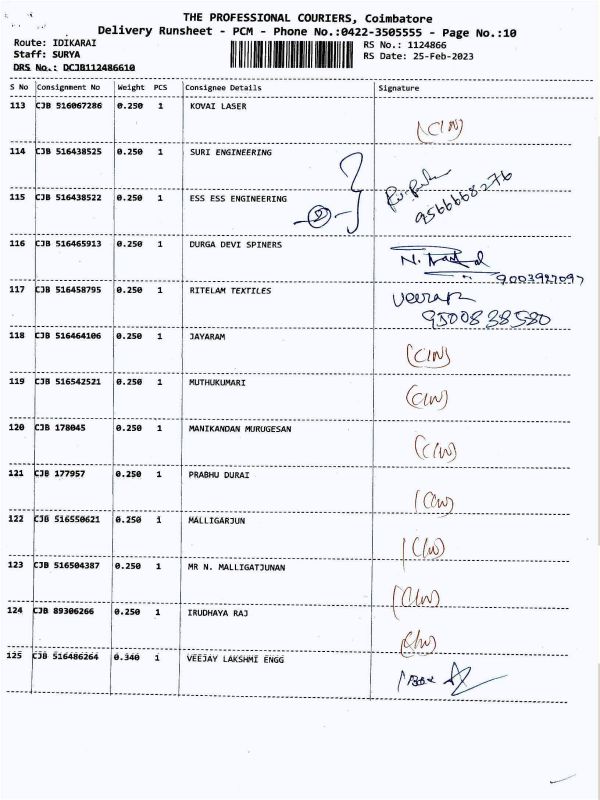 THE PROFESSIONAL COURIERS, Coimbatore
Delivery Runsheet - PCM - Phone No.:0422-3505555 - Page No.:10
Route: IDIKARAI
Staff: SURYA
DRS No.: DCJB112486610
RS No.: 1124866
RS Date: 25-Feb-2023
S No Consignment No Weight PCS Consignee Details Signature
113 CJB 516067286 0.250 1 KOVAI LASER
(CIN)
114 CJB 516438525 0.250 1 SURI ENGINEERING
115 CJB 516438522 0.250 1 ESS ESS ENGINEERING
2
9566668276
116 CJB 516465913 0.250 1 DURGA DEVI SPINERS
N.
9003927097
117 CJB 516458795 0.250 1 RITELAM TEXTILES
9500838580
118 CJB 516464106 0.250 1 JAYARAM
(CIN)
119 CJB 516542521 0.250 1 MUTHUKUMARI
(CIN)
120 CJB 178045 0.250 1 MANIKANDAN MURUGESAN
(CIN)
121 CJB 177957 0.250 1 PRABHU DURAI
(CIN)
122 CJB 516550621 0.250 1 MALLIGARJUN
(CIN)
123 CJB 516504387 0.250 1 MR N. MALLIGATJUNAN
(CIN)
124 CJB 89306266 0.250 1 IRUDHAYA RAJ
(CIN)
125 CJB 516486264 0.340 1 VEEJAY LAKSHMI ENGG
Box